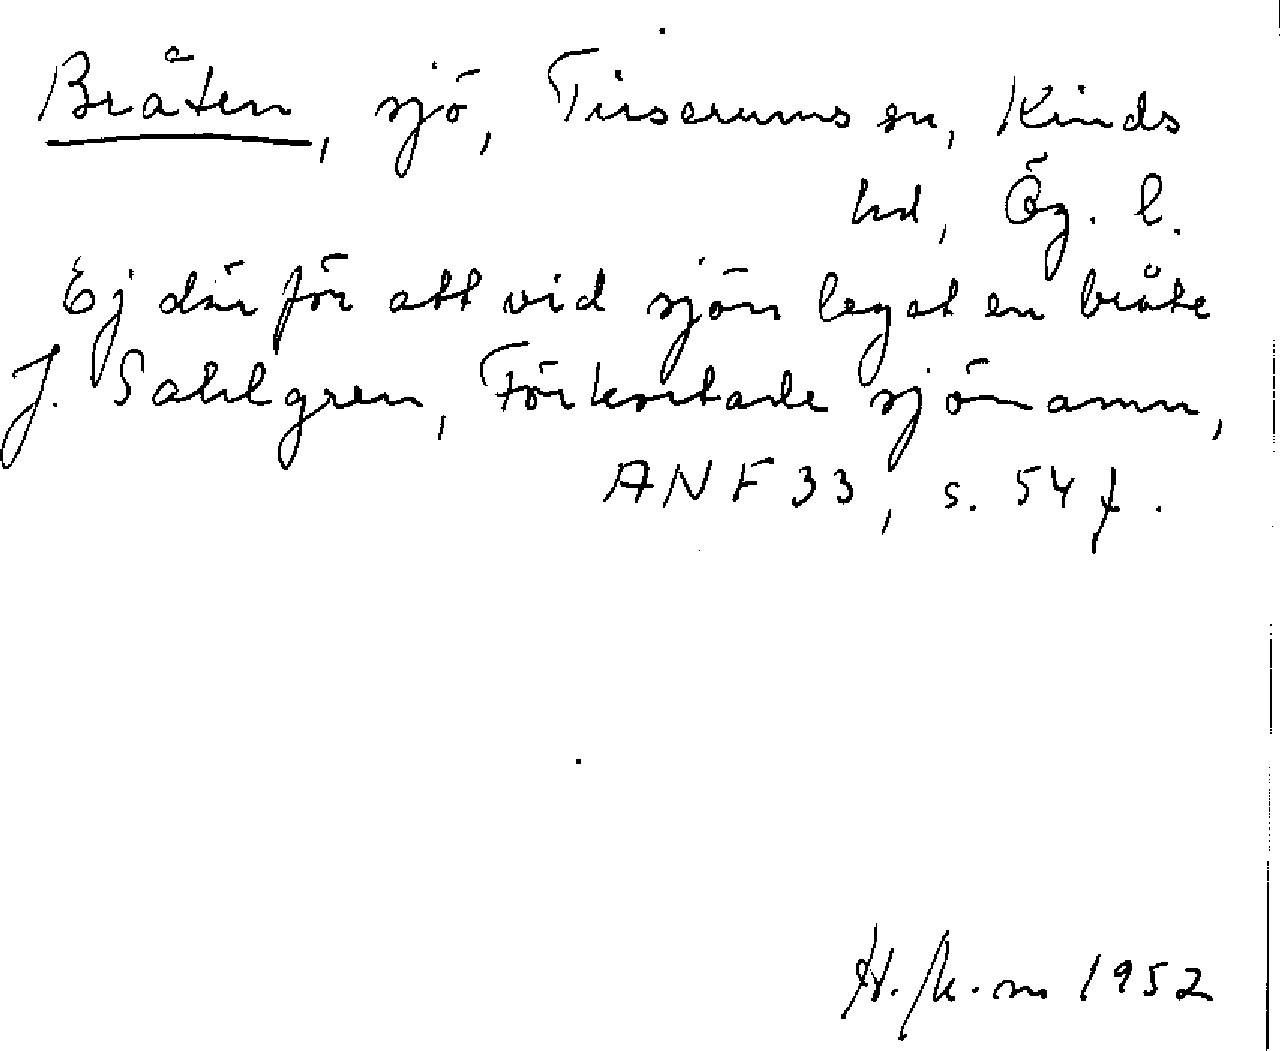 Bråten, sjö, Tirserums sn, Kinds
hd, Ög. l.
Ej där för att vid sjön legat en bråte
J. Sahlgren, Förkortade sjönamn,
ANF 33, s. 54 f.
1952